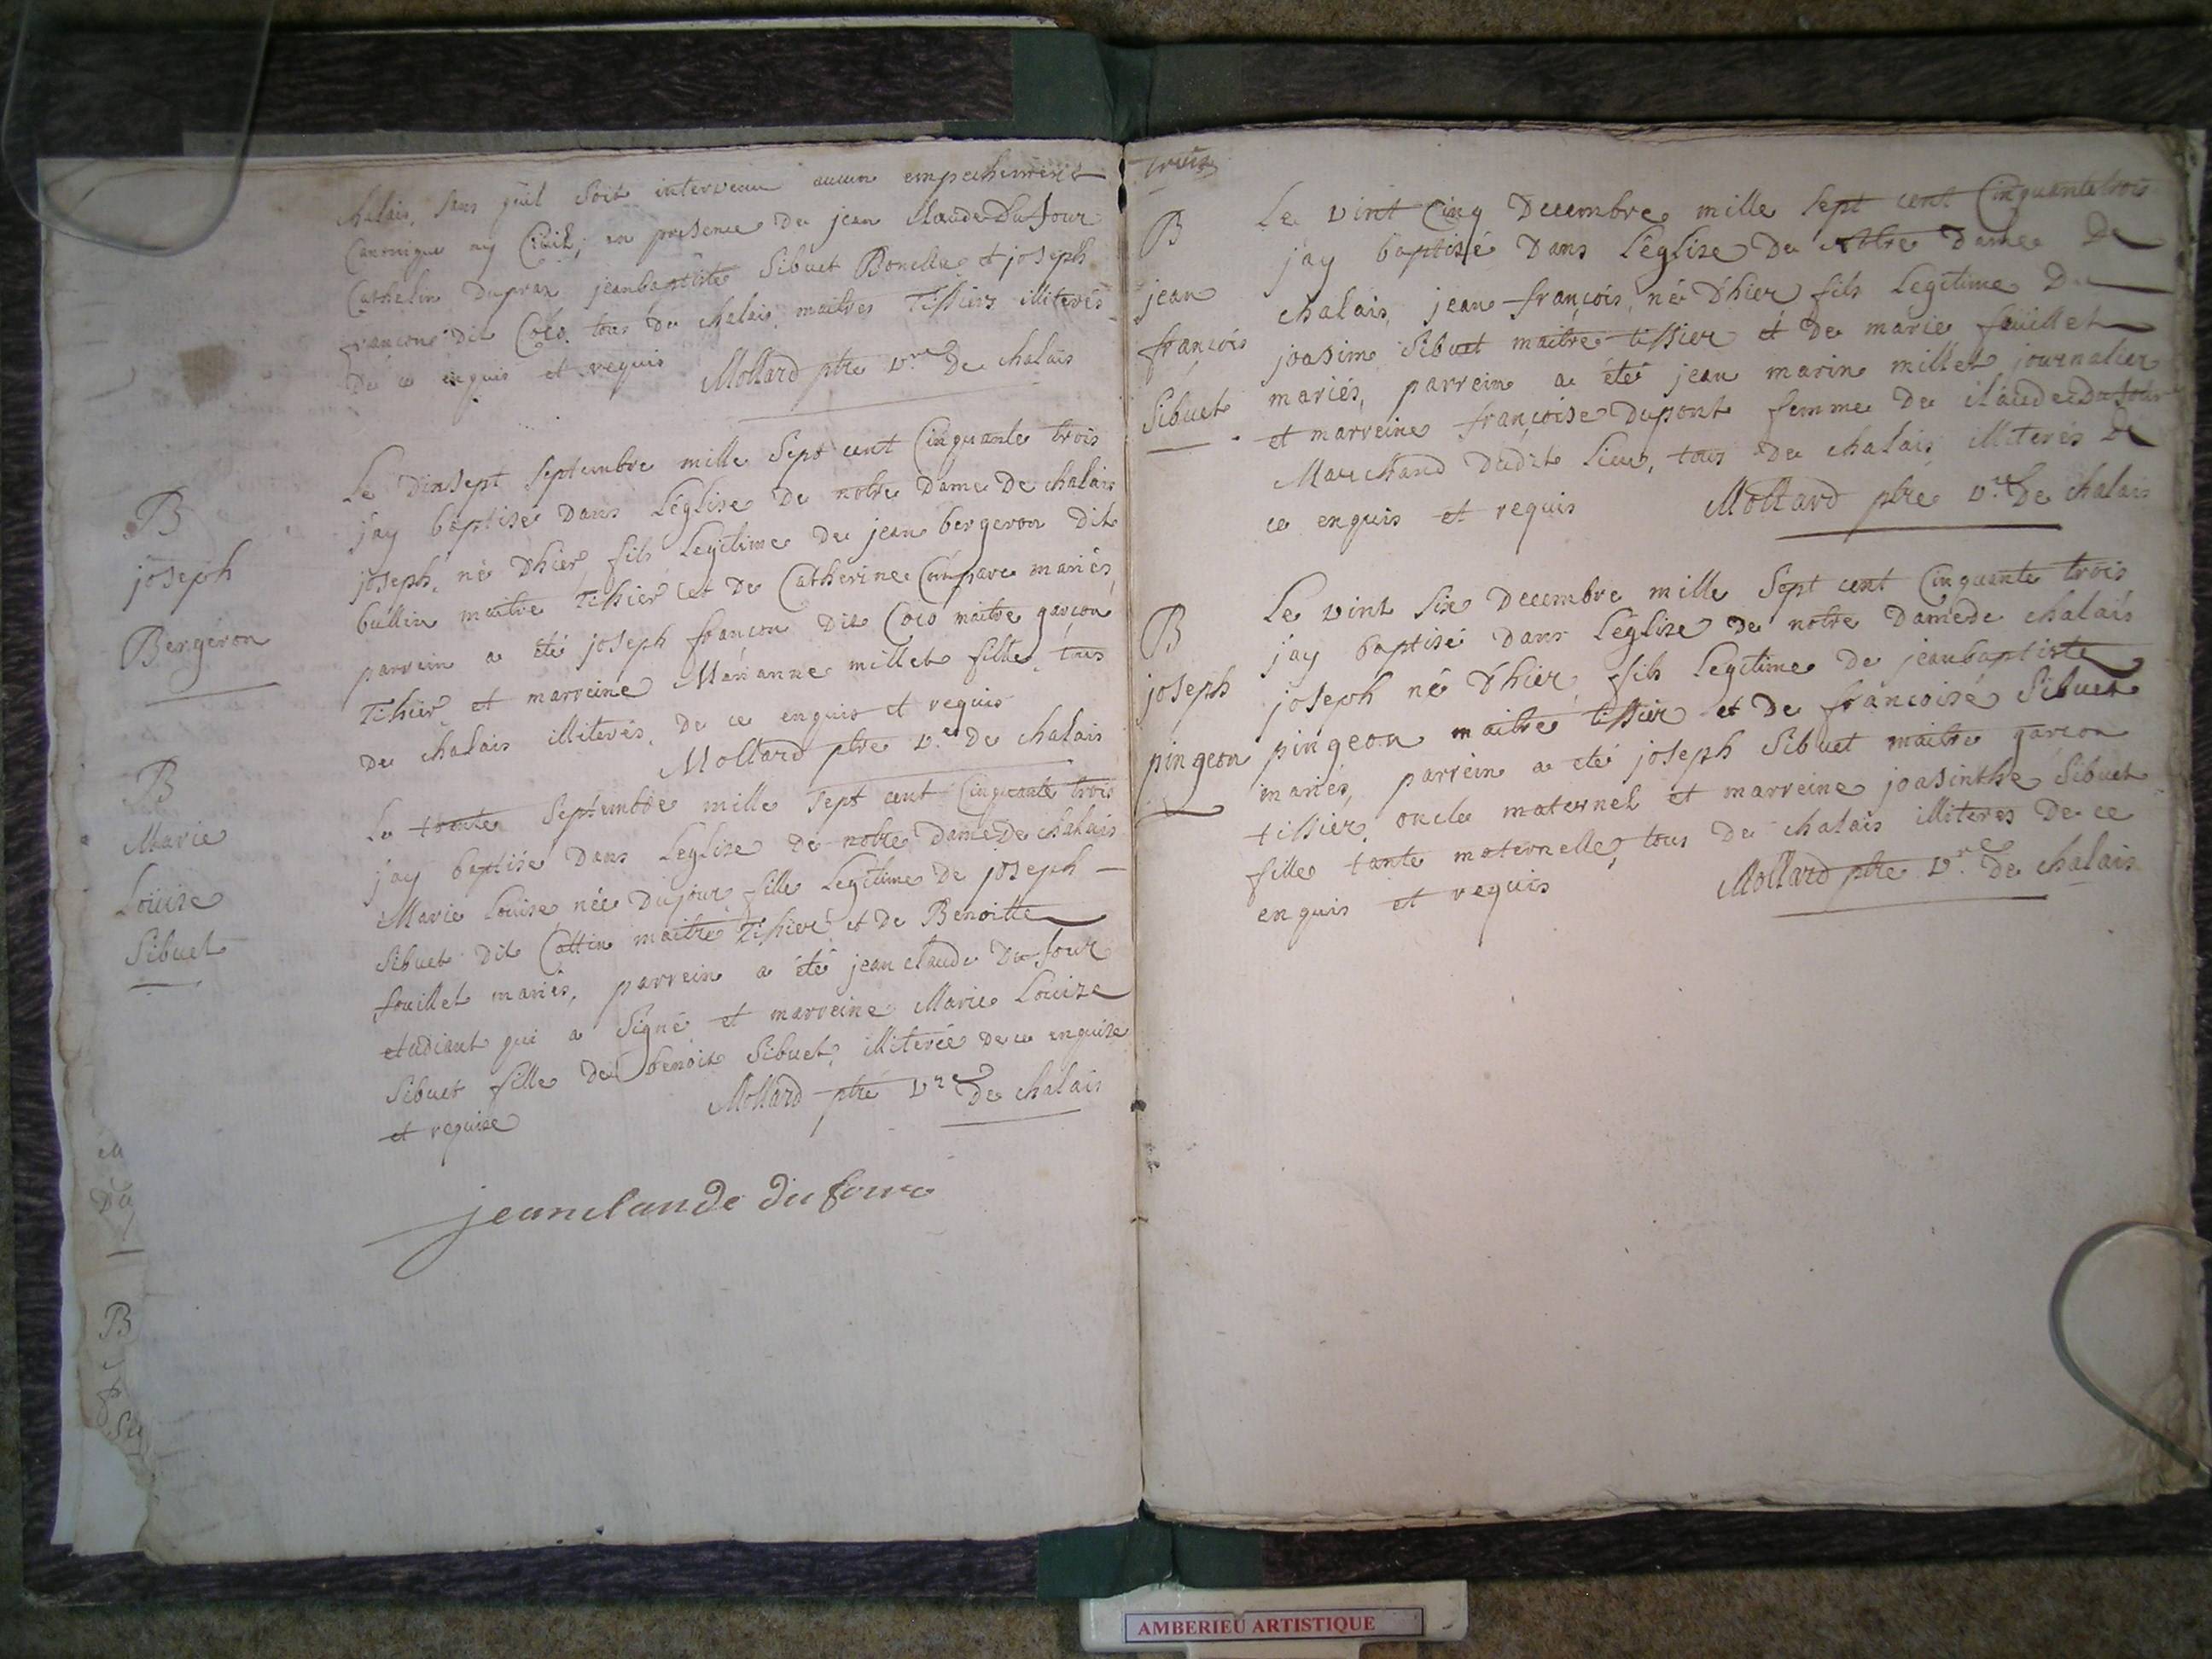 chalais, sans quil soit intervenu aucun empechement
Canonique ny Civil, en presence de jean Claude Du four
Cathelin Dupraz jeanbaptiste Sibuet Bonella et joseph
françon dit Coco tous de chalais, maitres Tissiers illiterés
de ce enquis et requis Mollard ptre vre De chalais
B
joseph
Bergeron
Le Dixsept Septembre mille Sept cent Cinquante trois
jay baptisé Dans Léglise De notre Dame De chalais
joseph, né Dhier fils Legitime de jean bergeron dit
bullin maitre Tissier et De Catherine mariés,
parrein a été joseph françon Dit Coco maitre garçon
Tissier, et marreine Marianne millet fille, tous
de chalais illiterés, de ce enquis et requis
Mollard ptre vre De chalais
B
Marie
Louise
Sibuet
Le trente Septembre mille Sept cent Cinquante trois
jay baptisé Dans Leglise De notre Dame De chalais
Marie Louise née Dujour, fille Legitime De joseph
Sibuet Dit Cattin maitre Tissier et De Benoitte
fouillet mariés, parrein a été jean claude Du four
etudiant qui a Signé et marreine Marie Louize
Sibuet fille de benoit Sibuet, illiterée De ce enquise
et requise Mollard ptre vre De chalais
jeanclaude dufour
trois
B
jean
françois
Sibuet
Le vint Cinq Decembre mille Sept cent Cinquante trois
jay baptisé Dans Léglise De Notre Dame De
chalais, jean françois, né Dhier fils Legitime De
joasim Sibuet maitre tissier et De marie foüillet
mariés, parrein a été jean marin millet journalier
et marreine françoise Dupont femme De claude Du four
Marchand Dudit Lieu, tous De chalais illiterés De
ce enquis et requis Mollard ptre vre De chalais
B
joseph
pingeon
Le vint Six Decembre mille Sept cent Cinquante trois
jay baptisé Dans Léglise De notre Dame De chalais
joseph né Dhier, fils Legitime De jeanbaptiste
pingeon maitre tissier et De françoise Sibuet
mariés, parrein a été joseph Sibuet maitre garçon
tissier, oncle maternel et marreine joasinthe Sibuet
fille tante maternelle, tous De chalais illiteres De ce
enquis et requis Mollard ptre vre De chalais
B
AMBERIEU ARTISTIQUE